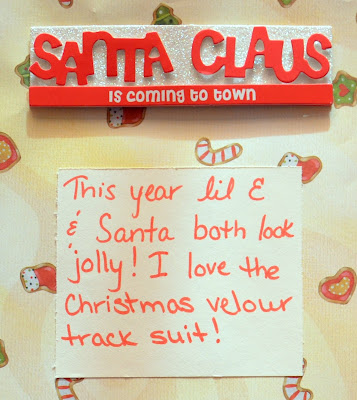 SANTA CLAUS
is coming to town
This year lil E
& Santa both look
jolly! I love the
Christmas velour
track suit!